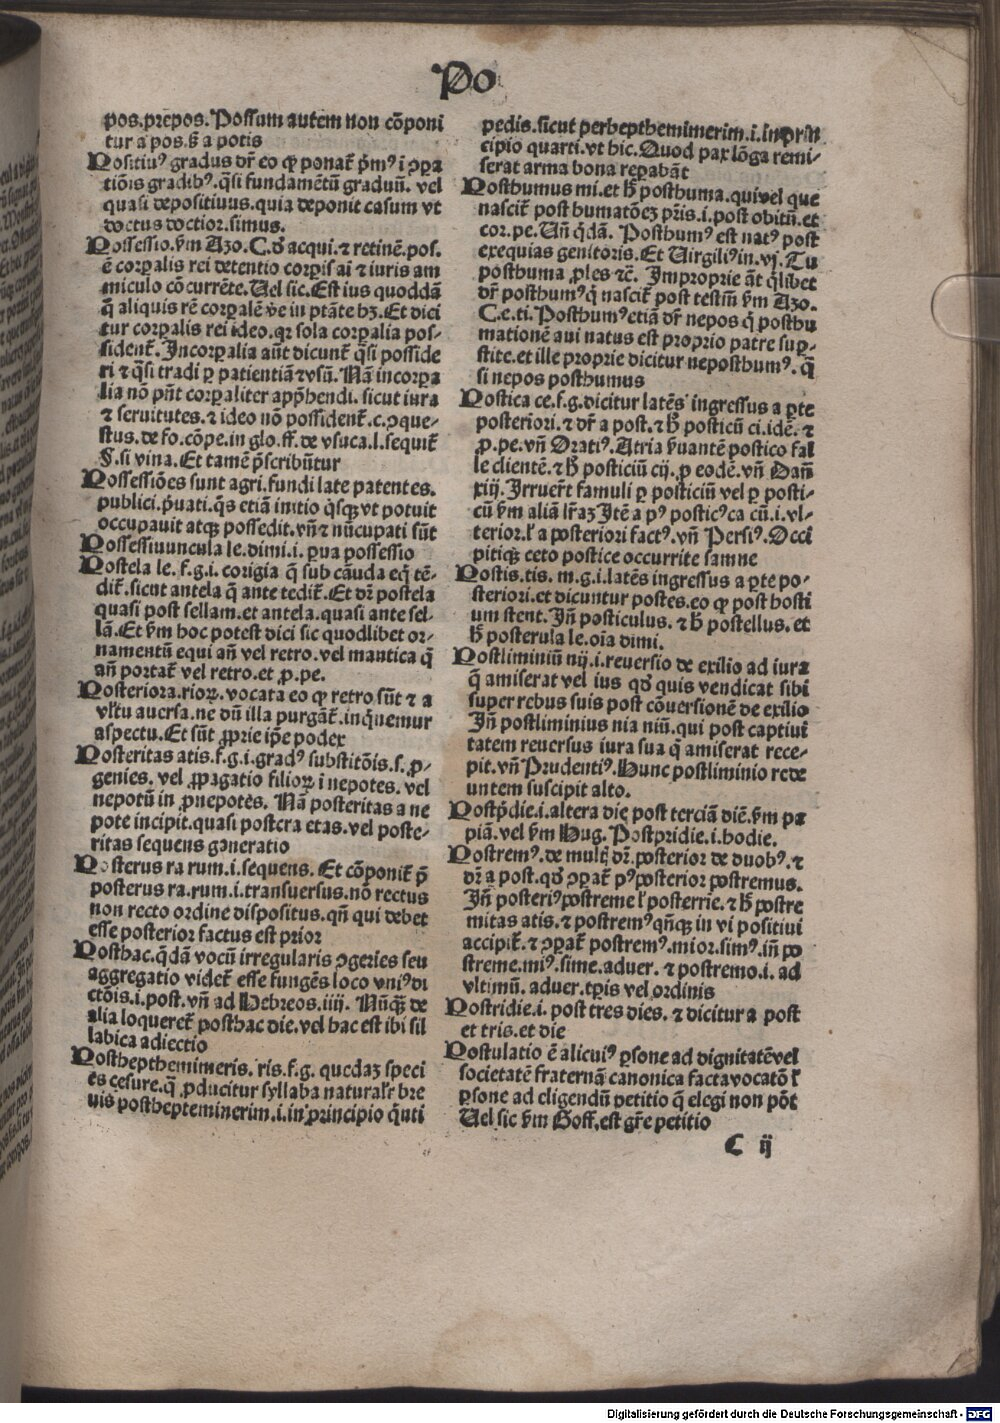 Po
pos.prepos.Possum autem non cōponi
tur a pos.ß a potis
Positiuꝰ gradus dr̄ eo ꝙ ponat̄ p̄mꝰ ī ꝯꝑa
tiōis gradibꝰ.q̄si fundamētū graduū. vel
quasi depositiuus.quia deponit casum vt
doctus doctior.simus.
Possessio.ẜm Azo.C.ꝺ acqui.⁊ retinē.pos.
ē corꝑalis rei detentio corꝑis ai ⁊ iuris am
miculo cōcurrēte.Uel sic.Est ius quoddā
q̄ aliquis rē corꝑalē ve in ptāte hꝫ.Et dici
tur corꝑalis rei ideo.qꝛ sola corꝑalia pos-
sident̄.Incorꝑalia aūt dicunt̄ q̄si posside
ri ⁊ q̄si tradi ꝑ patientiā ⁊vsū.Nā incorꝑa
lia nō pn̄t corꝑaliter app̄hendi.sicut iura
⁊ seruitutes.⁊ ideo nō possident̄.c.ꝯque-
stus.de fo.cōpe.in glo.ff.de vsuca.l.sequit̄
§.si vina.Et tamē p̄scribūtur
Possessiōes sunt agri.fundi late patentes.
publici.p̄uati.q̄s etiā initio q̄sqꝫ vt potuit
occupauit atqꝫ possedit.vn̄ ⁊ nūcupati sūt
Possessiuuncula le.dimi.i.pua possessio
Postela le.f.g.i.corigia q̄ sub cauda eq̄ tē-
dit̄.sicut antela q̄ ante tedit̄.Et dꝛ postela
quasi post sellam.et antela.quasi ante sel-
lā.Et ẜm hoc potest dici sic quodlibet or-
namentū equi an̄ vel retro.vel mantica q̄
an̄ portat̄ vel retro.et ꝓ.pe.
Posteriora.rioꝝ.vocata eo ꝙ retro sūt ⁊ a
vl̄tu auersa.ne dū illa purgāt̄.inq̄uemur
aspectu.Et sūt ꝓprie ip̄e podex
Posteritas atis.f.g.i.gradꝰ substitōis.s.ꝓ-
genies.vel ꝓpagatio filioꝝ i nepotes.vel
nepotū in p̄nepotes. Nā posteritas a ne
pote incipit.quasi postera etas.vel poste-
ritas sequens generatio
Posterus ra rum.i.sequens. Et cōponit̄ p̄
posterus ra.rum.i.transuersus.nō rectus
non recto ordine dispositus.qn̄ qui debet
esse posterior factus est prior
Posthac.q̄dā vocū irregularis ꝯgeries seu
aggregatio videt̄ esse fungēs loco vniꝰ di
ctōis.i.post.vn̄ ad Hebreos.iiij. Nūqꝫ de
alia loqueret̄ posthac die.vel hac est ibi sil
labica adiectio
Posthepthemimeris.ris.f.g. quedaꝫ speci
es cesure.q̄ ꝓducitur syllaba naturalr̄ bre
uis posthepteminerim.i.in principio q̄uti
pedis.sicut perhepthemimerim.i.in prin
cipio quarti.vt hic.Quod pax lōga remi-
serat arma bona repabāt
Posthumus mi.et h̄ posthuma.qui vel que
nascit̄ post humatōeꝫ pr̄is.i.post obitū.et
cor.pe.Un̄ q̄dā. Posthumꝰ est natꝰ post
exequias genitoris.Et Uirgiliꝰ in.vj.Tu
posthuma ꝓles ⁊c̄. Improprie āt q̄libet
dr̄ posthumꝰ q̄ nascit̄ post testm̄ ẜm Azo.
C.e.ti.Posthumꝰ etiā dr̄ nepos q̄ posthu
mationē aui natus est proprio patre suꝑ-
stite.et ille proprie dicitur neposthumꝰ.q̄
si nepos posthumus
Postica ce.f.g.dicitur latēs ingressus a ꝑte
posteriori.⁊ dr̄ a post.⁊ h̄ posticū ci.idē.⁊
ꝓ.pe.vn̄ Oratiꝰ.Atria ẜuantē postico fal
le clientē.⁊ h̄ posticiū cij.ꝓ eodē.vn̄ Dan̄
xiij.Irruer̄t famuli ꝑ posticiū vel ꝑ posti-
cū ẜm aliā lr̄aꝫ Itē a pꝰ posticꝰ ca cū.i.vl-
terior.l̄ a posteriori factꝰ.vn̄ Persiꝰ.Occi
pitiqꝫ ceto postice occurrite samne
Postis.tis. m.g.i.latēs ingressus a ꝑte po-
steriori.et dicuntur postes.eo ꝙ post hosti
um stent. Jn̄ posticulus. ⁊ h̄ postellus.et
h̄ posterula le.oīa dimi.
Postliminiū nij.i.reuersio de exilio ad iura
q̄ amiserat vel ius qꝺ quis vendicat sibi
super rebus suis post cōuersionē de exilio
Jn̄ postliminius nia niū.qui post captiui
tatem reuersus iura sua q̄ amiserat rece-
pit.vn̄ Prudentiꝰ.Hunc postliminio rede
untem suscipit alto.
Postp̄die.i.altera die post terciā diē.ẜm pa
piā.vel ẜm Hug. Postpridie.i.hodie.
Postremꝰ.de multꝭ dꝛ.posterior de duobꝰ.⁊
dꝛ a post.qꝺ ꝯꝑat̄ pꝰ posterior postremus.
Jn̄ posteriꝰ postreme l̄ posterrie.⁊ h̄ postre
mitas atis.⁊ postremꝰ qn̄qꝫ in vi positiui
accipit̄.⁊ ꝯꝑat̄ postremꝰ.mior.simꝰ.in̄ po
streme.miꝰ.sime.aduer. ⁊ postremo.i. ad
vltimū. aduer.tꝑis vel ordinis
Postridie.i. post tres dies. ⁊ dicitur a post
et tris.et die
Postulatio ē alicuiꝰ ꝑsone ad dignitatē vel
societatē fraternā canonica facta vocatō l̄
ꝑsone ad eligendū petitio q̄ elegi non pōt
Uel sic ẜm Goff.est gr̄e petitio
C ij
Digitalisierung gefördert durch die Deutsche Forschungsgemeinschaft - DFG